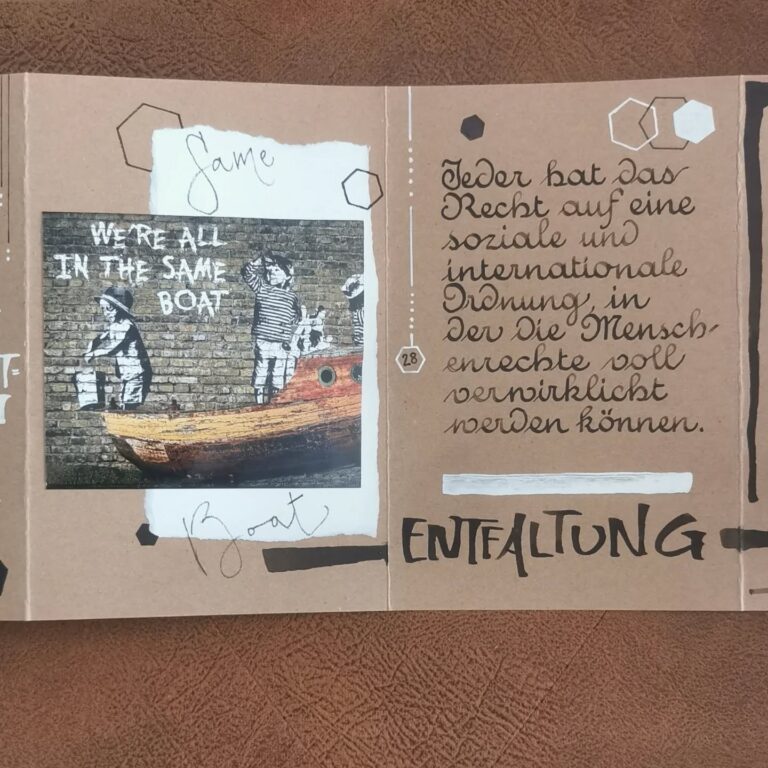 Same
WE'RE ALL
IN THE SAME
BOAT
Boat
28
Jeder hat das
Recht auf eine
soziale und
internationale
Ordnung, in
der die Mensch-
enrechte voll
verwirklicht
werden können.
ENTFALTUNG